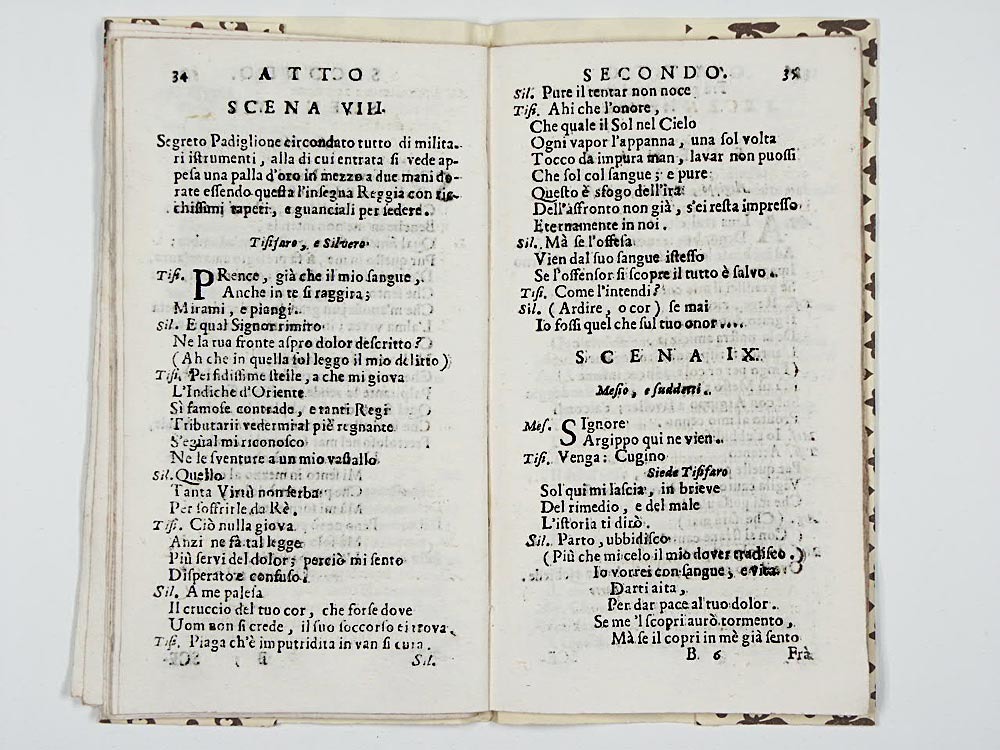 34 ATTO
SCENA VIII.
Segreto Padiglione circondato tutto di milita-
ri iſtrumenti, alla di cui entrata ſi vede ap-
peſa una palla d'oro in mezzo a due mani do-
rate eſſendo queſta l'inſegna Reggia con ric-
chiſſimi tapeti, e guanciali per ſedere.
Tiſifaro, e Silvero
Tiſi. PRence, già che il mio ſangue,
Anche in te ſi raggira;
Mirami, e piangi.
Sil. E qual Signor rimiro
Ne la tua fronte aſpro dolor deſcritto?
(Ah che in quella ſol leggo il mio delitto)
Tiſi. Perfidiſſime ſtelle, a che mi giova
L'Indiche d'Oriente
Sì famoſe contrade, e tanti Regi
Tributarii vedermi al piè regnante
S'egual mi riconoſco
Ne le ſventure a un mio vaſſallo
Sil. Quello
Tanta Virtù non ſerba
Per ſoffrirle da Rè.
Tiſi. Ciò nulla giova.
Anzi ne fà tal legge
Più ſervi del dolor; perciò mi ſento
Diſperato e confuſo.
Sil. A me paleſa
Il cruccio del tuo cor, che forſe dove
Uom non ſi crede, il ſuo ſoccorſo ei trova.
Tiſi. Piaga ch'è imputridita in van ſi cura.
Sil.
SECONDO. 35
Sil. Pure il tentar non noce
Tiſi. Ahi che l'onore,
Che quale il Sol nel Cielo
Ogni vapor l'appanna, una ſol volta
Tocco da impura man, lavar non puoſſi
Che ſol col ſangue; e pure
Queſto è sfogo dell'ira:
Dell'affronto non già, s'ei reſta impreſſo
Eternamente in noi.
Sil. Mà ſe l'offeſa
Vien dal ſuo ſangue iſteſſo
Se l'offenſor ſi ſcopre il tutto è ſalvo.
Tiſi. Come l'intendi?
Sil. (Ardire, o cor) ſe mai
Io foſſi quel che ſul tuo onor....
SCENA IX.
Meſio, e ſuddetti.
Meſ. SIgnore
Argippo qui ne vien.
Tiſi. Venga: Cugino
Siede Tiſifaro
Sol qui mi laſcia, in breve
Del rimedio, e del male
L'iſtoria ti dirò.
Sil. Parto, ubbidiſco
(Più che mi celo il mio dover tradiſco.)
Io vorrei con ſangue, e vita
Darti aita,
Per dar pace al tuo dolor.
Se me 'l ſcopri aurò tormento,
Mà ſe il copri in mè già ſento
B. 6 Frà